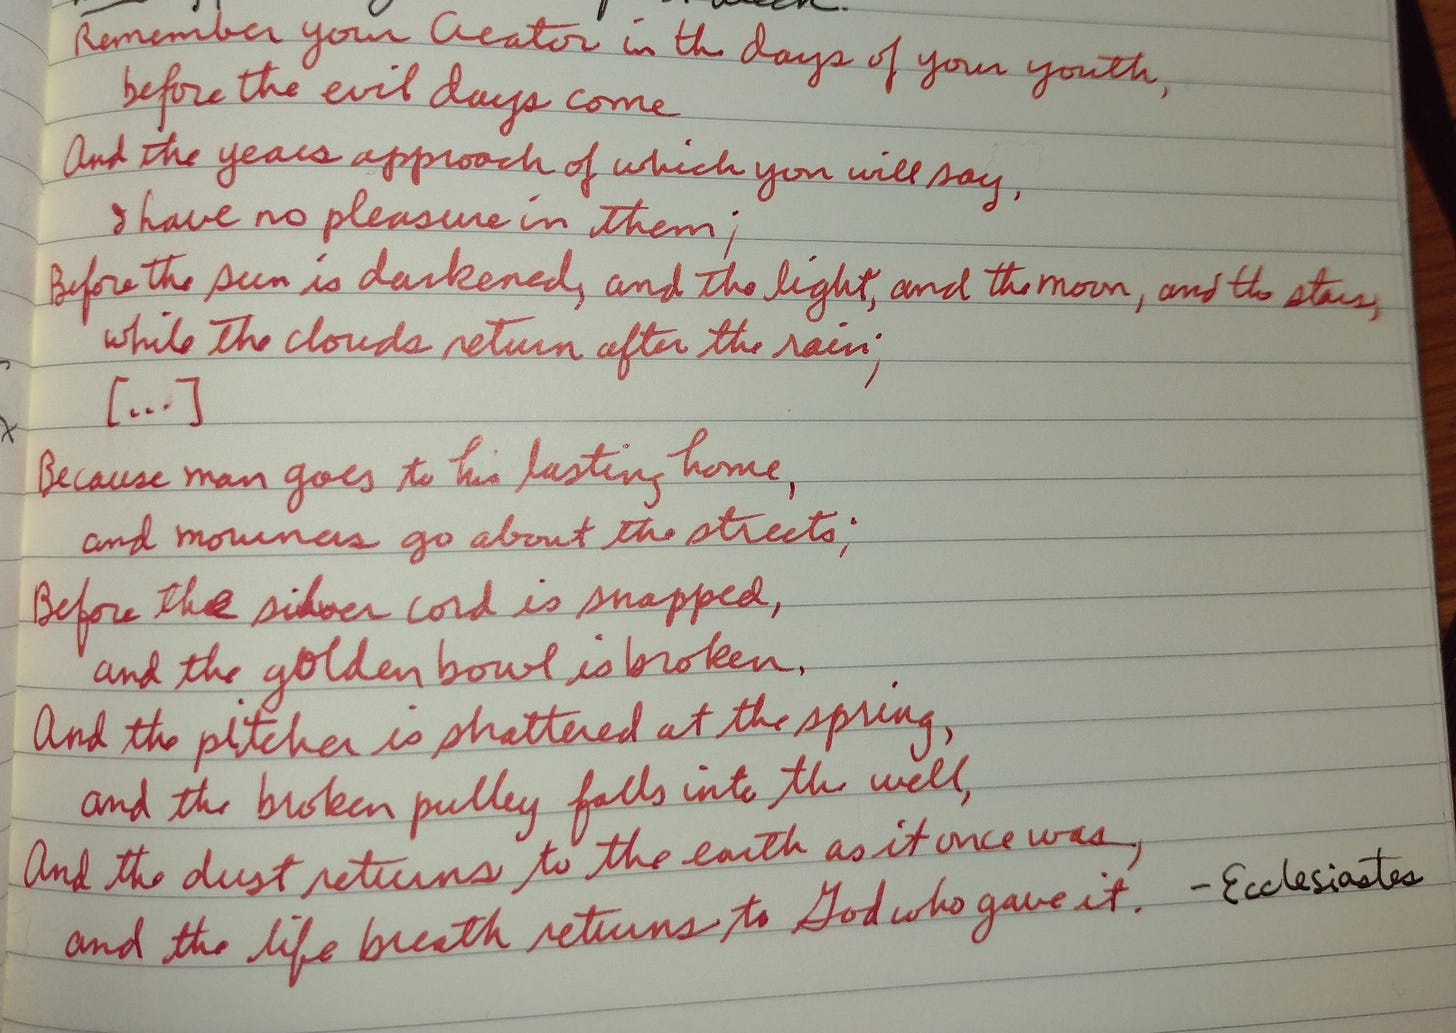 week.
Remember your Creator in the days of your youth,
before the evil days come
And the years approach of which you will say,
I have no pleasure in them;
Before the sun is darkened, and the light, and the moon, and the stars,
while the clouds return after the rain;
[...]
Because man goes to his lasting home,
and mourners go about the streets;
Before the silver cord is snapped,
and the golden bowl is broken,
And the pitcher is shattered at the spring,
and the broken pulley falls into the well,
And the dust returns to the earth as it once was,
and the life breath returns to God who gave it. - Ecclesiastes